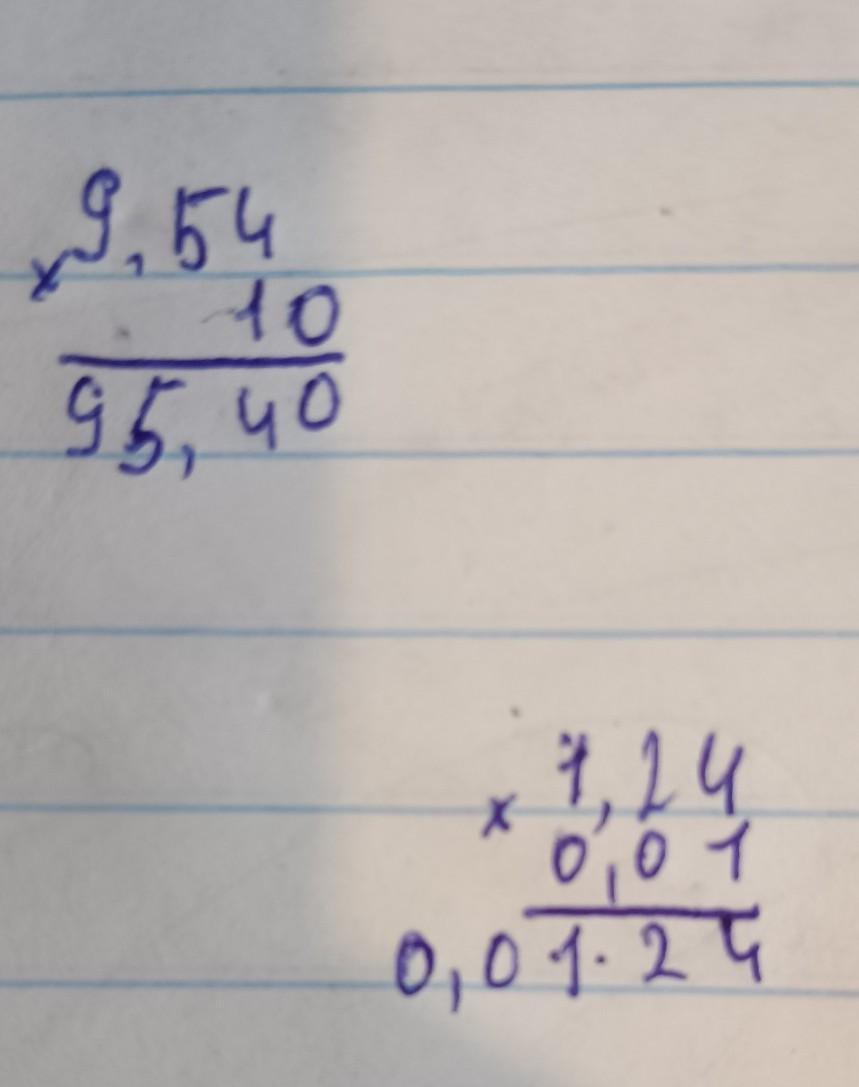 9,54
× 10
95,40
× 1,24
0,01
0,01.24